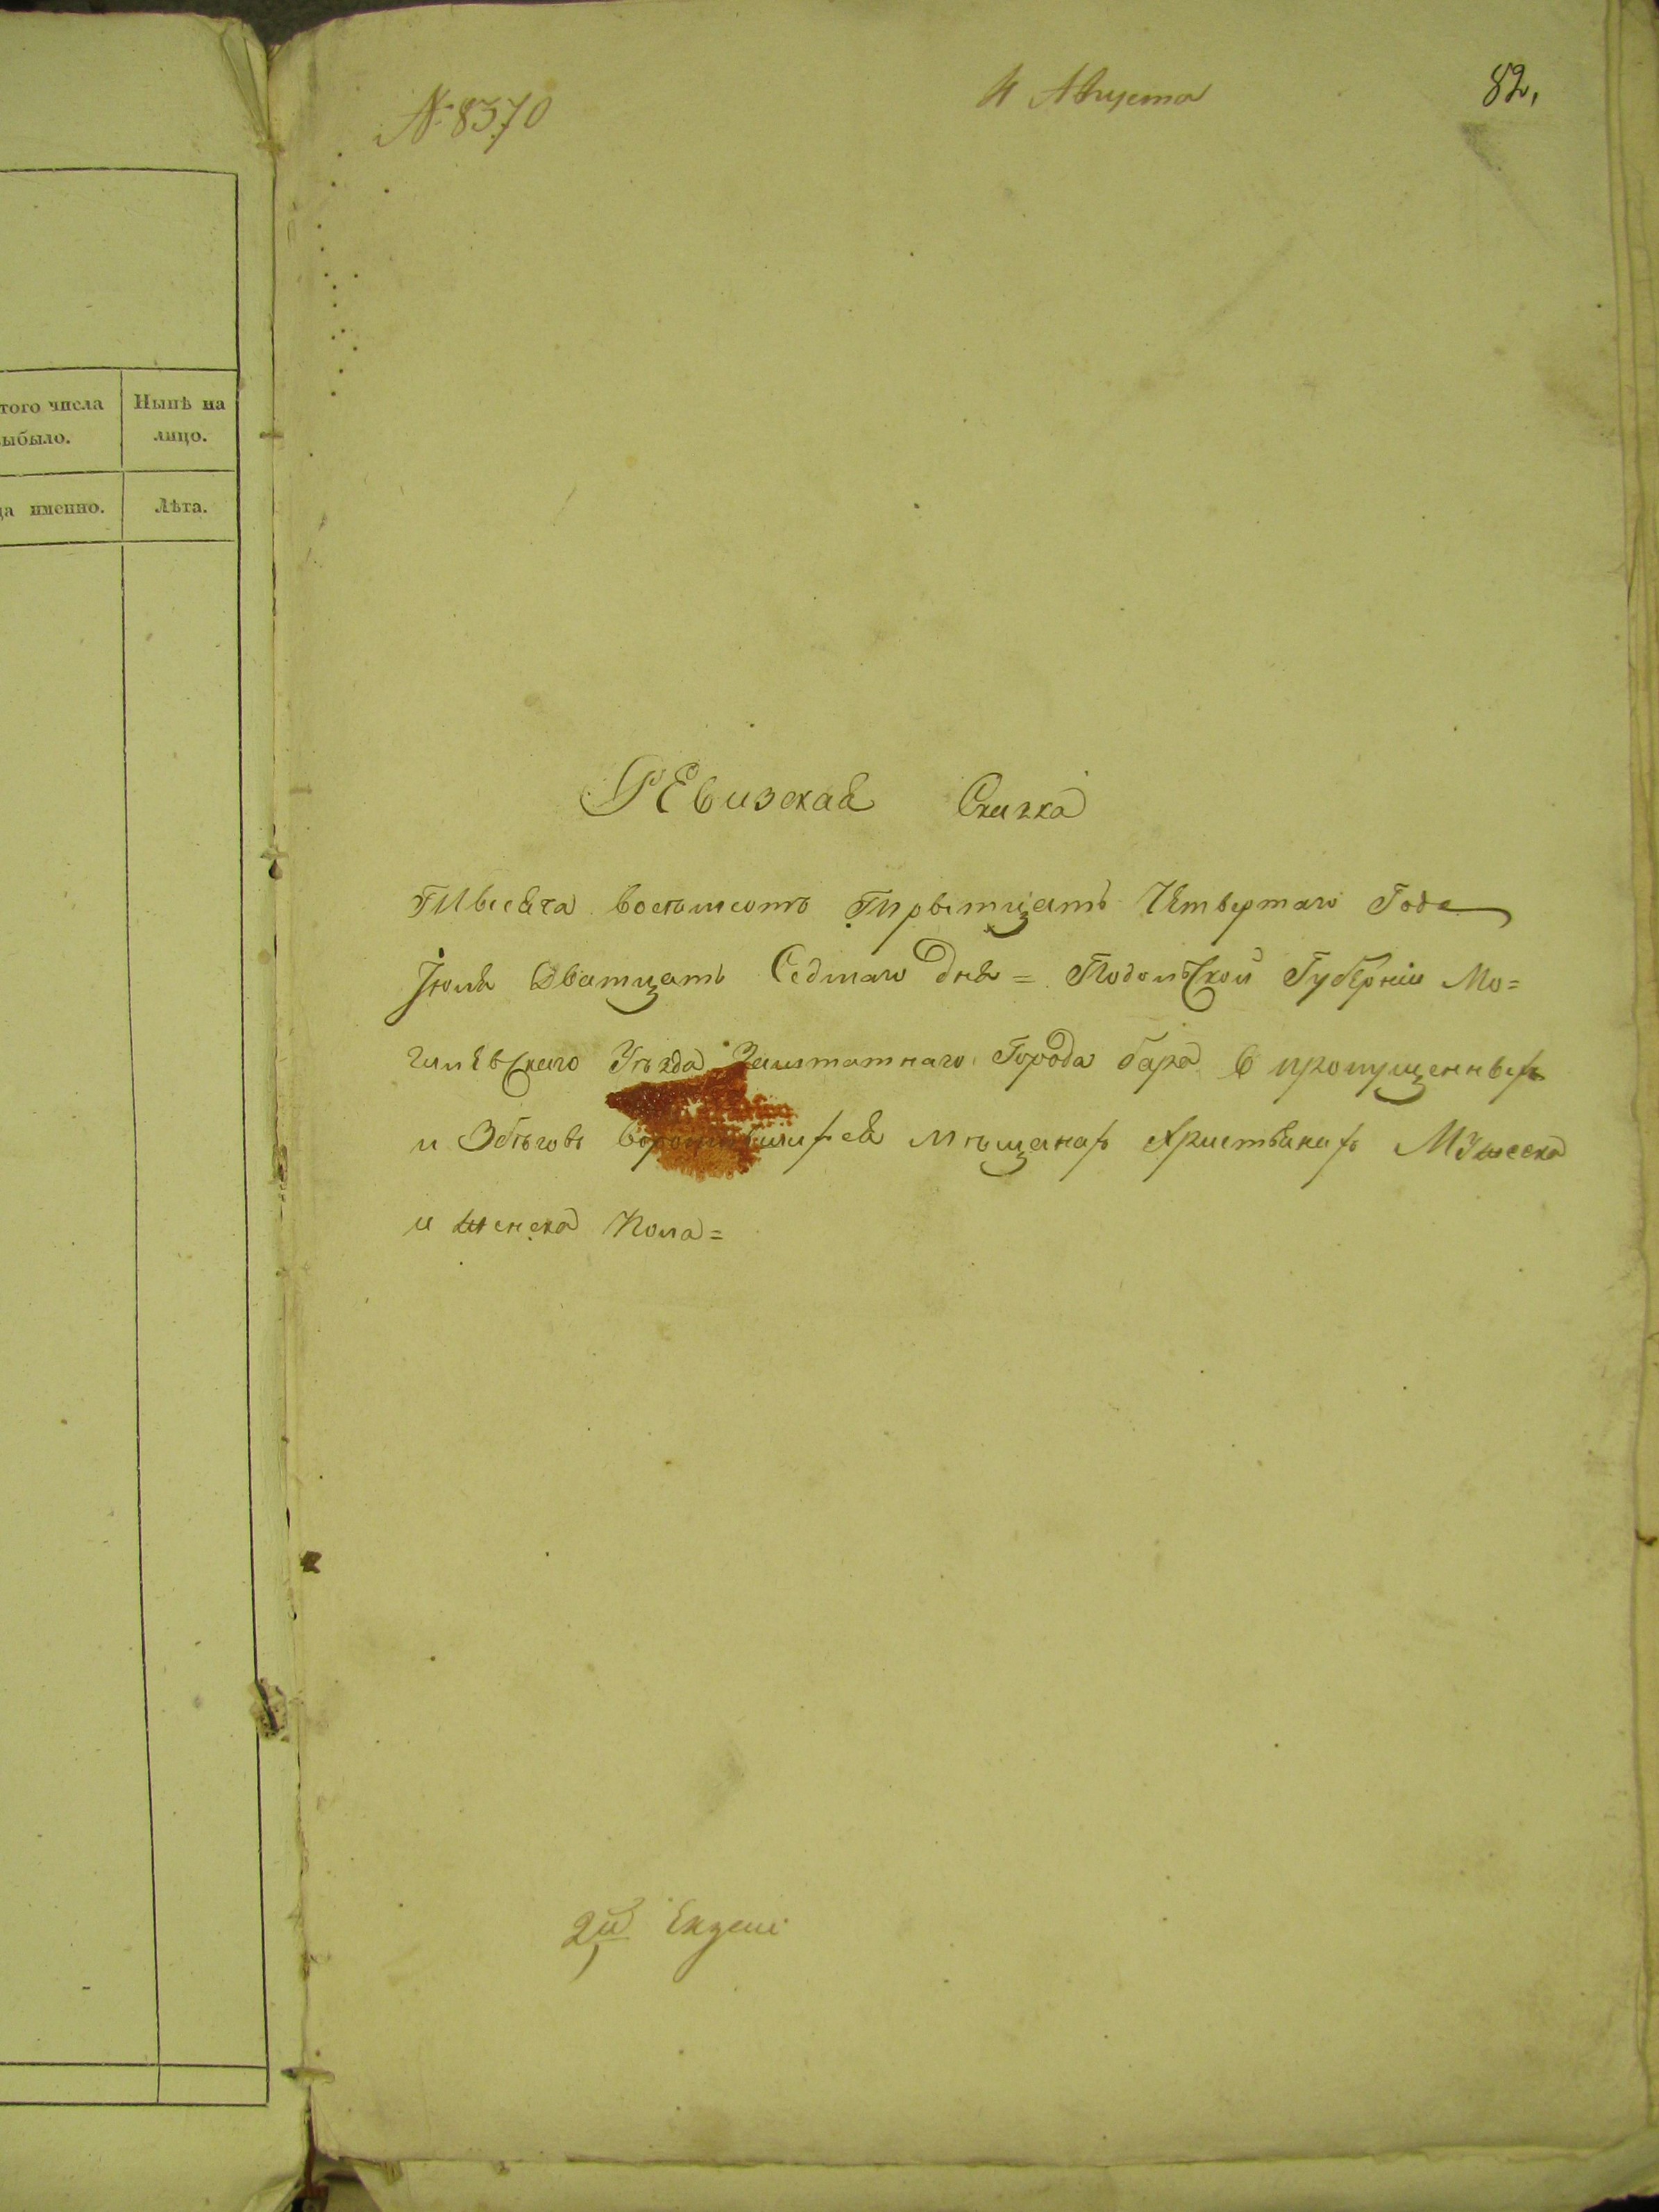 того числа
выбыло.
Нынѣ на
лицо.
да именно.
Лѣта.
№ 8370
4 Августа
82,
РЕвизская Скаска
Тысяча восьмсотъ Трытцать Чтвертаго Года
Іюля Дватцать Седмаго дня = Подольской Губерніи Мо=
гилЕвскаго Уѣзда Заштатнаго Города бара в пропущенныхъ
и Збѣгов воротившихся мѣщанахъ христьянахъ Мужеска
и женска Пола=
2й Екземп